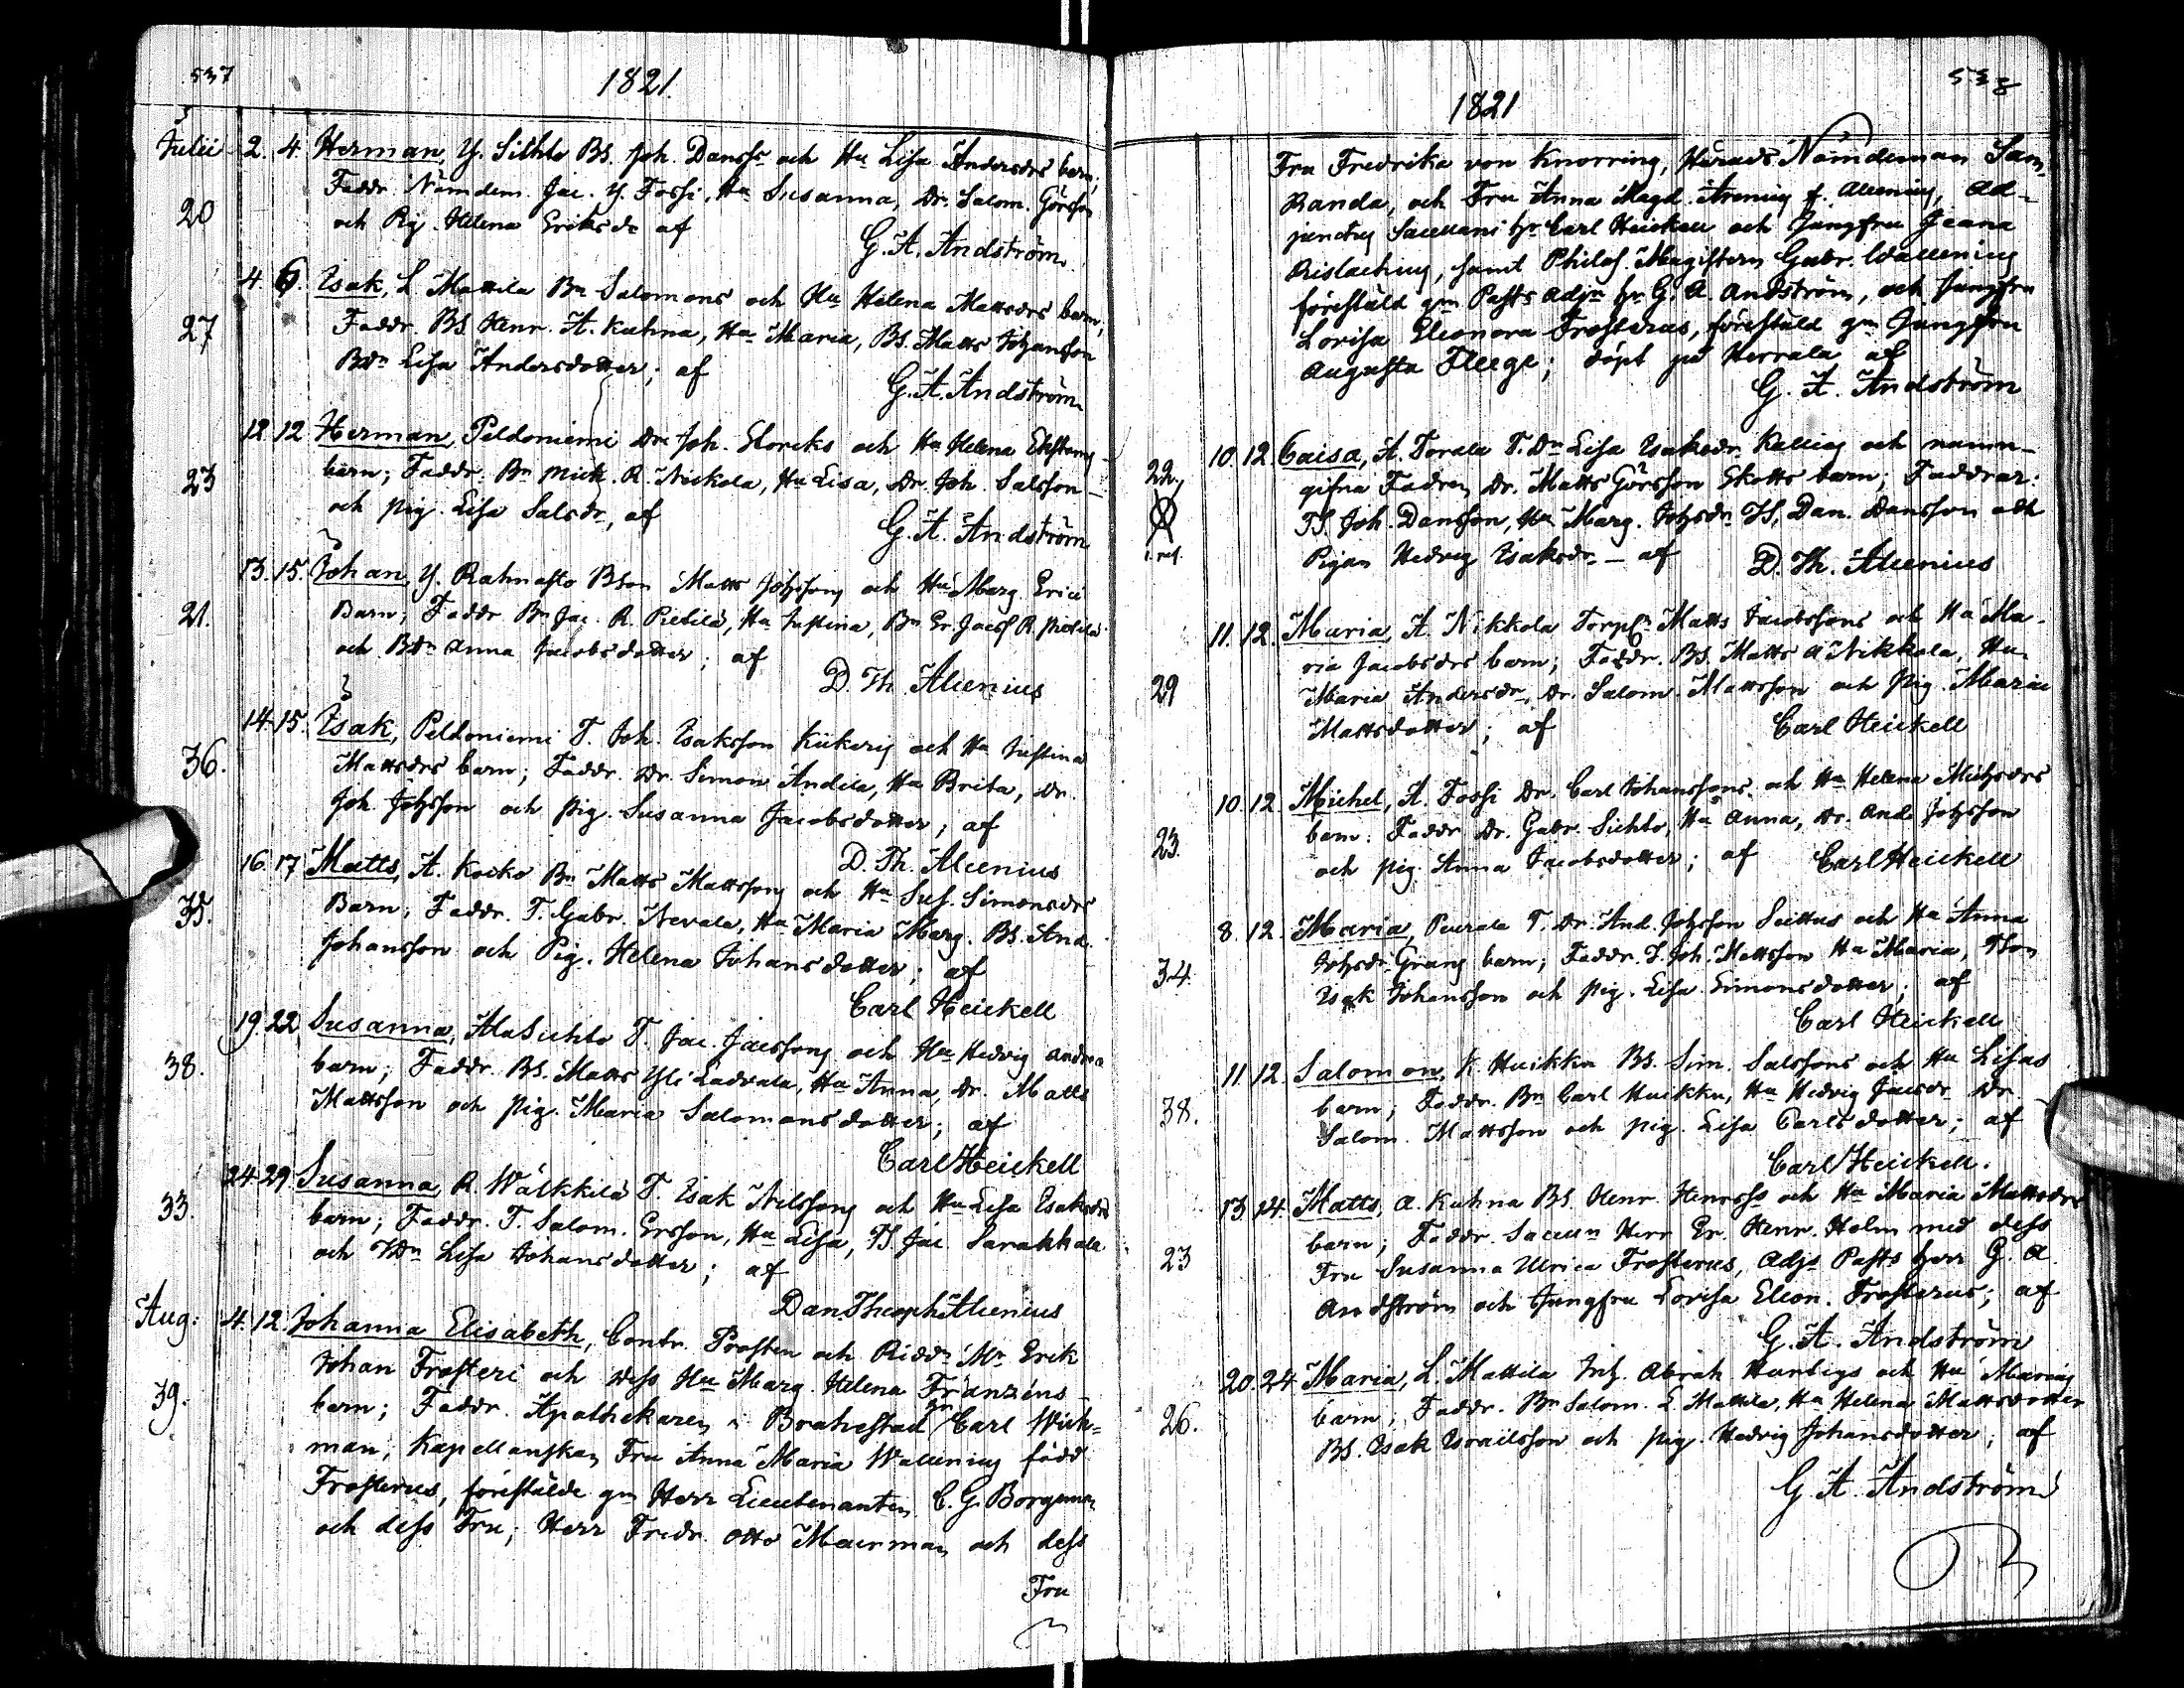 537
1821.
Julii 2. 4. Herman, Y. Sihto BS. Joh. Danss: och Hu Lisa Andersdrs barn;
Faddr. Nämdem. Jac. Y. Fossi, Hu Susanna, Dr. Salom. Görsson
20
och Pig. Helena Eriksdr af
G. A. Andström.
4. 6. Isak, L. Mattila Bn Salomons och Hu Helena Mattsdrs barn;
27
Faddr. BS. Henr. A. Kuhna, Hu Maria, BS. Matts Johansson
BDn Lisa Andersdotter; af
G. A. Andström
12. 12 Herman, Peldoniemi Dr. Joh. Storcks och Hu Helena
23
barn; Faddr. Bn Mich. R. Nickola, Hu Lisa, Dr. Joh. Salsson
och pig. Lisa Salsdr, af
G. A. Andström
13. 15. Johan, Y. Rahnasto BSon Matts Johssons och Hu Marg. Erici
21.
Barn; Faddr Bn Jac. R. Pietilä, Hu Justina, Bn Er. Jacss R. Pietilä
och BDn Anna Jacobsdotter; af
D. Th. Alcenius
14. 15. Isak, Peldoniemi T. Joh. Isaksson Kiikeris och Hu Justina
36.
Mattsdrs barn; Faddr. Dr. Simon Andela, Hu Brita, Dr.
Joh. Johsson och pig. Susanna Jacobsdotter; af
D. Th. Alcenius
16. 17 Matts, A. Koiko Bn Matts Mattssons och Hu Sus. Simonsdrs
35.
Barn; Faddr. T. Gabr. Nevala, Hu Maria Marg. BS. And.
Johansson och Pig. Helena Johansdotter; af
Carl Heickell
19. 22 Susanna, AlaSichto T. Jac. Jacssons och Hu Hedvig Andrea
38.
barn; Faddr. BS. Matts Yli Ladvala, Hu Anna, Dr. Matts
Mattsson och pig. Maria Salomonsdotter; af
Carl Heickell
24. 29 Susanna, R. Wälkkilä T. Isak Nilssons och Hu Lisa Isaksdrs
33.
barn; Faddr. T. Salom. Ersson, Hu Lisa, TS. Jac. Sarakkala
och TDn Lisa Johansdotter; af
Dan. Theoph. Alcenius
Aug: 4. 12. Johanna Elisabeth, Contr. Prosten och Riddn Mr Erik
Johan Frosteri och dess Hu Marg. Helena Franzéns
39.
barn; Faddr. Apothekaren i Brahestad Carl Wick-
man, Kapellanskan Fru Anna Maria Wallenius född
Frosterus, föreställde gm Herr Lieutenanten C. G. Borgman
och dess Fru; Herr Fredr. Otto Meurman och dess
Fru
538
1821
Fru Fredrika von Knorring, Härads Nämdeman Sam.
Randa, och Fru Anna Magd. f. Alcenius, Ad-
junctus Sacellani hr Carl Heickell och Jungfru Jeana
samt Philos. Magistern Gabr. Wallenius
föreställd gm Pasts Adjn hr G. A. Andström, och Jungfru
Lovisa Eleonora Frosterus, föreställd gm Jungfru
Augusta Fleege; döpt på Herrala af
G. A. Andström
22.
10. 12. Caisa, A. Torala T. Dn Lisa Isaksdr Kallias och namn-
gifna Fadren Dr. Matts Görsson Skotts barn; Faddrar:
TS. Joh. Dansson, Hu Marg. Johsdr TS. Dan. Dansson och
Pigan Hedvig Isaksdr - af
D. Th. Alcenius
11. 12. Maria, A. Nikkola Torpn Matts Jacobssons och Hu Ma-
ria Jacobsdrs barn; Faddr. BS. Matts A Nikkola, Hu
29
Maria Andersdr, Dr. Salom. Mattsson och pig. Maria
Mattsdotter; af
Carl Heickell
10. 12. Michel, A. Fossi Dr. Carl Johanssons och Hu Helena Michsdrs
23.
barn. Faddr Dr. Gabr. Sichto, Hu Anna, Dr. And. Johsson
och pig. Anna Jacobsdotter; af
Carl Heickell
8. 12. Maria, Peurala T. Dr. And. Johsson och Hu Anna
34.
Johsdr Grang barn; Faddr. T. Joh. Mattsson Hu Maria, TSon
Isak Johansson och pig. Lisa Simonsdotter; af
Carl Heickell
11. 12. Salomon, K. Huikku BS. Sim. Salssons och Hu Lisas
38.
barn; Faddr. Bn Carl Huikku, Hu Hedvig Jacsdr Dr.
Salom. Mattsson och pig. Lisa Carlsdotter; af
Carl Heickell.
13. 14. Matts, A. Kuhna BS. Henr. Henrss och Hu Maria Mattsdrs
23
barn; Faddr. Herr Er. Henr. Holm med dess
Fru Susanna Ulrica Frosterus, Adjn Pasts herr G. A.
Andström och Jungfru Lovisa Eleon. Frosterus; af
G. A. Andström
20. 24 Maria, L. Mattila Inh. Abrah. och Hu Marias
26.
barn; Faddr. Bn Salom. L. Mattila, Hu Helena Mattsdotter
BS. Isak Israelsson och pig. Hedvig Johansdotter; af
G. A. Andström